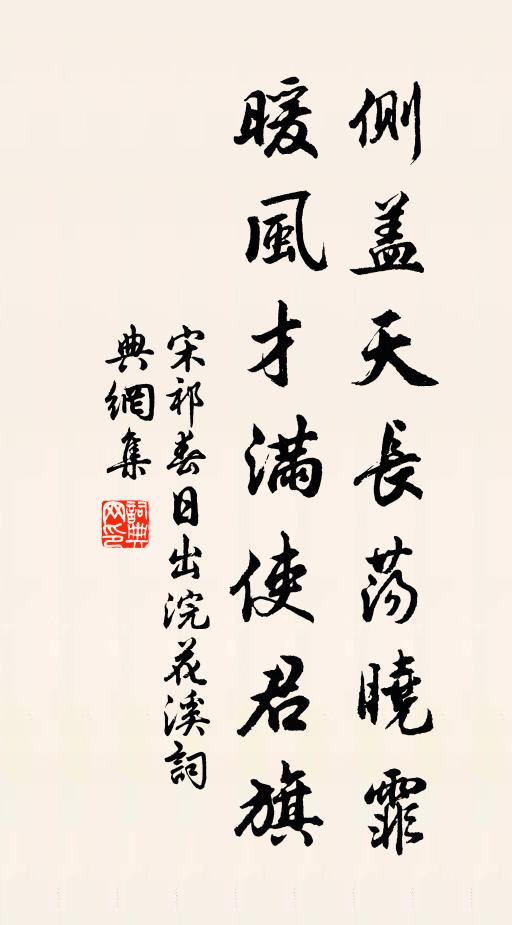 側盖天長蕩曉霏
暖風才滿使君旗
宋祁春日出浣花溪詞
典網集
詞典
网印